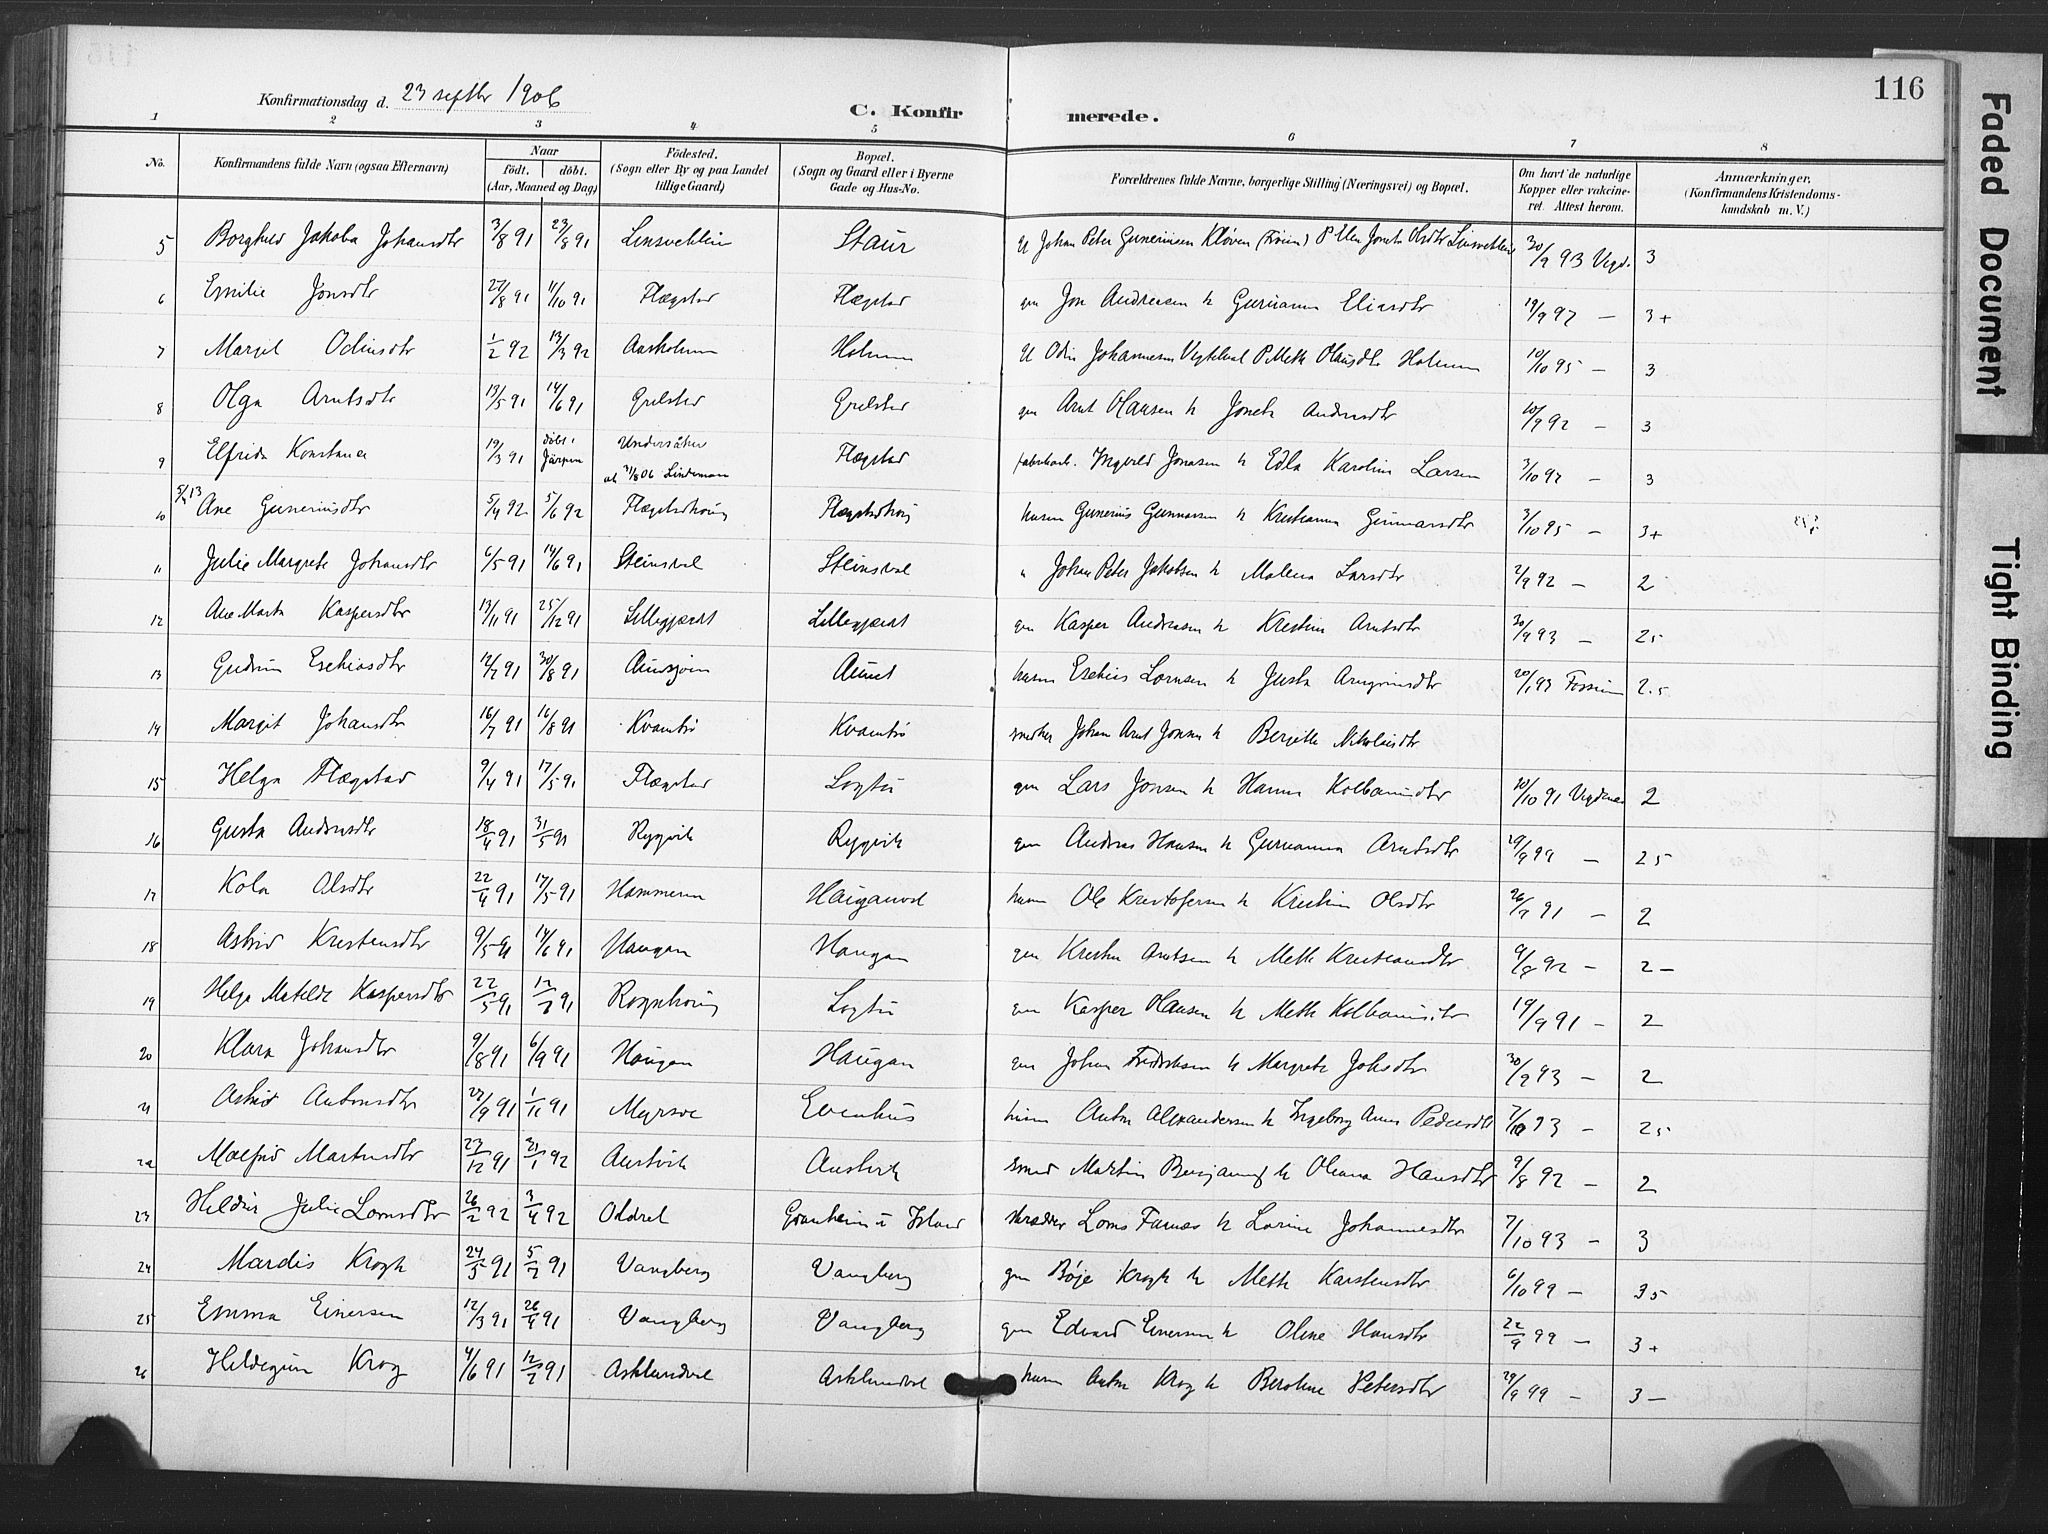 116
Konfirmationsdag d. 23 septbr 1906
C. Konfirmerede.
1 2 3 4 5 6 7 8
No. Konfirmandens fulde Navn (ogsaa Efternavn) Naar födt. döbt. (Aar, Maaned og Dag) Födested. (Sogn eller By og paa Landet tillige Gaard) Bopæl. (Sogn og Gaard eller i Byerne Gade og Hus-No. Forældrenes fulde Navne, borgerlige Stilling (Næringsvei) og Bopæl. Om havt de naturlige Kopper eller vakcineret. Attest herom. Anmærkninger. (Konfirmandens Kristendomskundskab m. V.)
5 Borghild Jakoba Johansdtr 3/8 91 23/8 91 Linsvetlien Staur U Johan Peter Guneriusen Kløven P Jonsta Olsdtr Linsvetlien 30/9 93 Vigd. 3
6 Emilie Jonsdtr 27/8 91 11/10 91 Flægstad Flægstad gm Jon Andreasen h Gurianna Eliasdtr 19/9 97 — 3+
7 Margit Odinsdtr 1/2 92 13/3 92 Aasholmen Holmen U Odin Johannesen P Meth Olausdtr Holmen 10/10 95 — 3
8 Olga Arntsdtr 13/5 91 14/6 91 Grelstad Grelstad gm Arnt Olausen h Joneta Andersdtr 10/9 92 — 3
9 Elfrida Konstanse 19/3 91 döbt i Järpen Undersåker Flægstad fabrikarb. Ingvald Jonasen h Edla Karoline Larsen 3/10 97 — 3
att 31/8 06 Lindeman
5/4 13
10 Ane Guneriusdtr 5/4 92 5/6 92 Flægstadhaug Flægstadhaug husm Gunerius Gunnarsen h Kristianna Gunnarsdtr 3/10 95 — 3+
11 Julie Margrete Johansdtr 6/5 91 14/6 91 Steinsval Steinsval " Johan Peter Jakobsen h Malena Larsdtr 2/9 92 — 2
12 Ane Marta Kaspersdtr 13/11 91 25/12 91 Lillegjerdt Lillegjerdt gm Kasper Andreasen h Kristine Arntsdtr 30/9 93 — 25
13 Gudrun Esekiasdtr 12/7 91 30/8 91 Aunsjøen Aunet husm Esekias Lornsen h Justa Arngrimsdtr 20/1 93 Fossum 2.5
14 Margit Johansdtr 16/7 91 16/8 91 Kvambø Kvambø snedker Johan Arnt Jonsen h Bergitte Nikolaisdtr
15 Helga Flægstad 9/4 91 17/5 91 Flægstad Logtu gm Lars Jonsen h Hanna Kolbanusdtr 10/10 91 Vigdenes 2
16 Gusta Andersdtr 18/4 91 31/5 91 Rygvik Rygvik gm Andreas Hansen h Gurianna Arntsdtr 29/9 99 — 25
17 Kola Olsdtr 22/4 91 17/5 91 Hammeren Hauganvol husm Ole Kristofersen h Kristine Olsdtr 26/9 91 — 2
18 Astrid Kristensdtr 9/5 91 14/6 91 Haugan Haugan gm Kristen Arntsen h Meth Kristiansdtr 9/8 92 — 2—
19 Helga Matilde Kaspersdtr 22/5 91 12/7 91 Rognhaug Logtu gm Kasper Olausen h Meth Kolbanusdtr 19/9 91 — 2
20 Klara Johansdtr 9/8 91 6/9 91 Haugan Haugan gm Johan Fredriksen h Margrete Johsdtr 30/9 93 — 2
21 Astrid Antonsdtr 27/9 91 1/11 91 Myrsve Evenhus husm Anton Alexandersen h Ingeborg Anna Pedersdtr 7/10 93 — 25
22 Malfrid Martinsdtr 23/12 91 31/1 92 Austvik Austvik smed Martin Benjaminsf h Oleana Hansdtr 9/8 92 — 2
23 Hildur Julie Lornsdtr 26/2 92 3/4 92 Oldvel Granheim i Island skrædder Lorns Farnæs h Lorine Johannesdtr 7/10 93 — 3
24 Mardis Krogh 24/5 91 5/7 91 Vangberg Vangberg gm Böje Krogh h Meth Karstensdtr 6/10 99 — 35
25 Emma Einersen 12/3 91 26/4 91 Vangberg Vangberg gm Edvard Einersen h Oline Hansdtr 22/9 99 — 3+
26 Hildegunn Krog 4/6 91 12/7 91 Asklundval Asklundval husm Anton Krog h Beroline Petersdtr 29/9 99 — 3—
Faded Document
Tight Binding